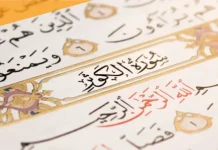 الَّذِينَ هُمْ
يُرَآءُونَ ٦ وَيَمْنَعُو
سُورَةُ الْكَوْثَرِ
اللَّهِ الرَّحْمَٰنِ الرَّحِيمِ
فَصَلِّ